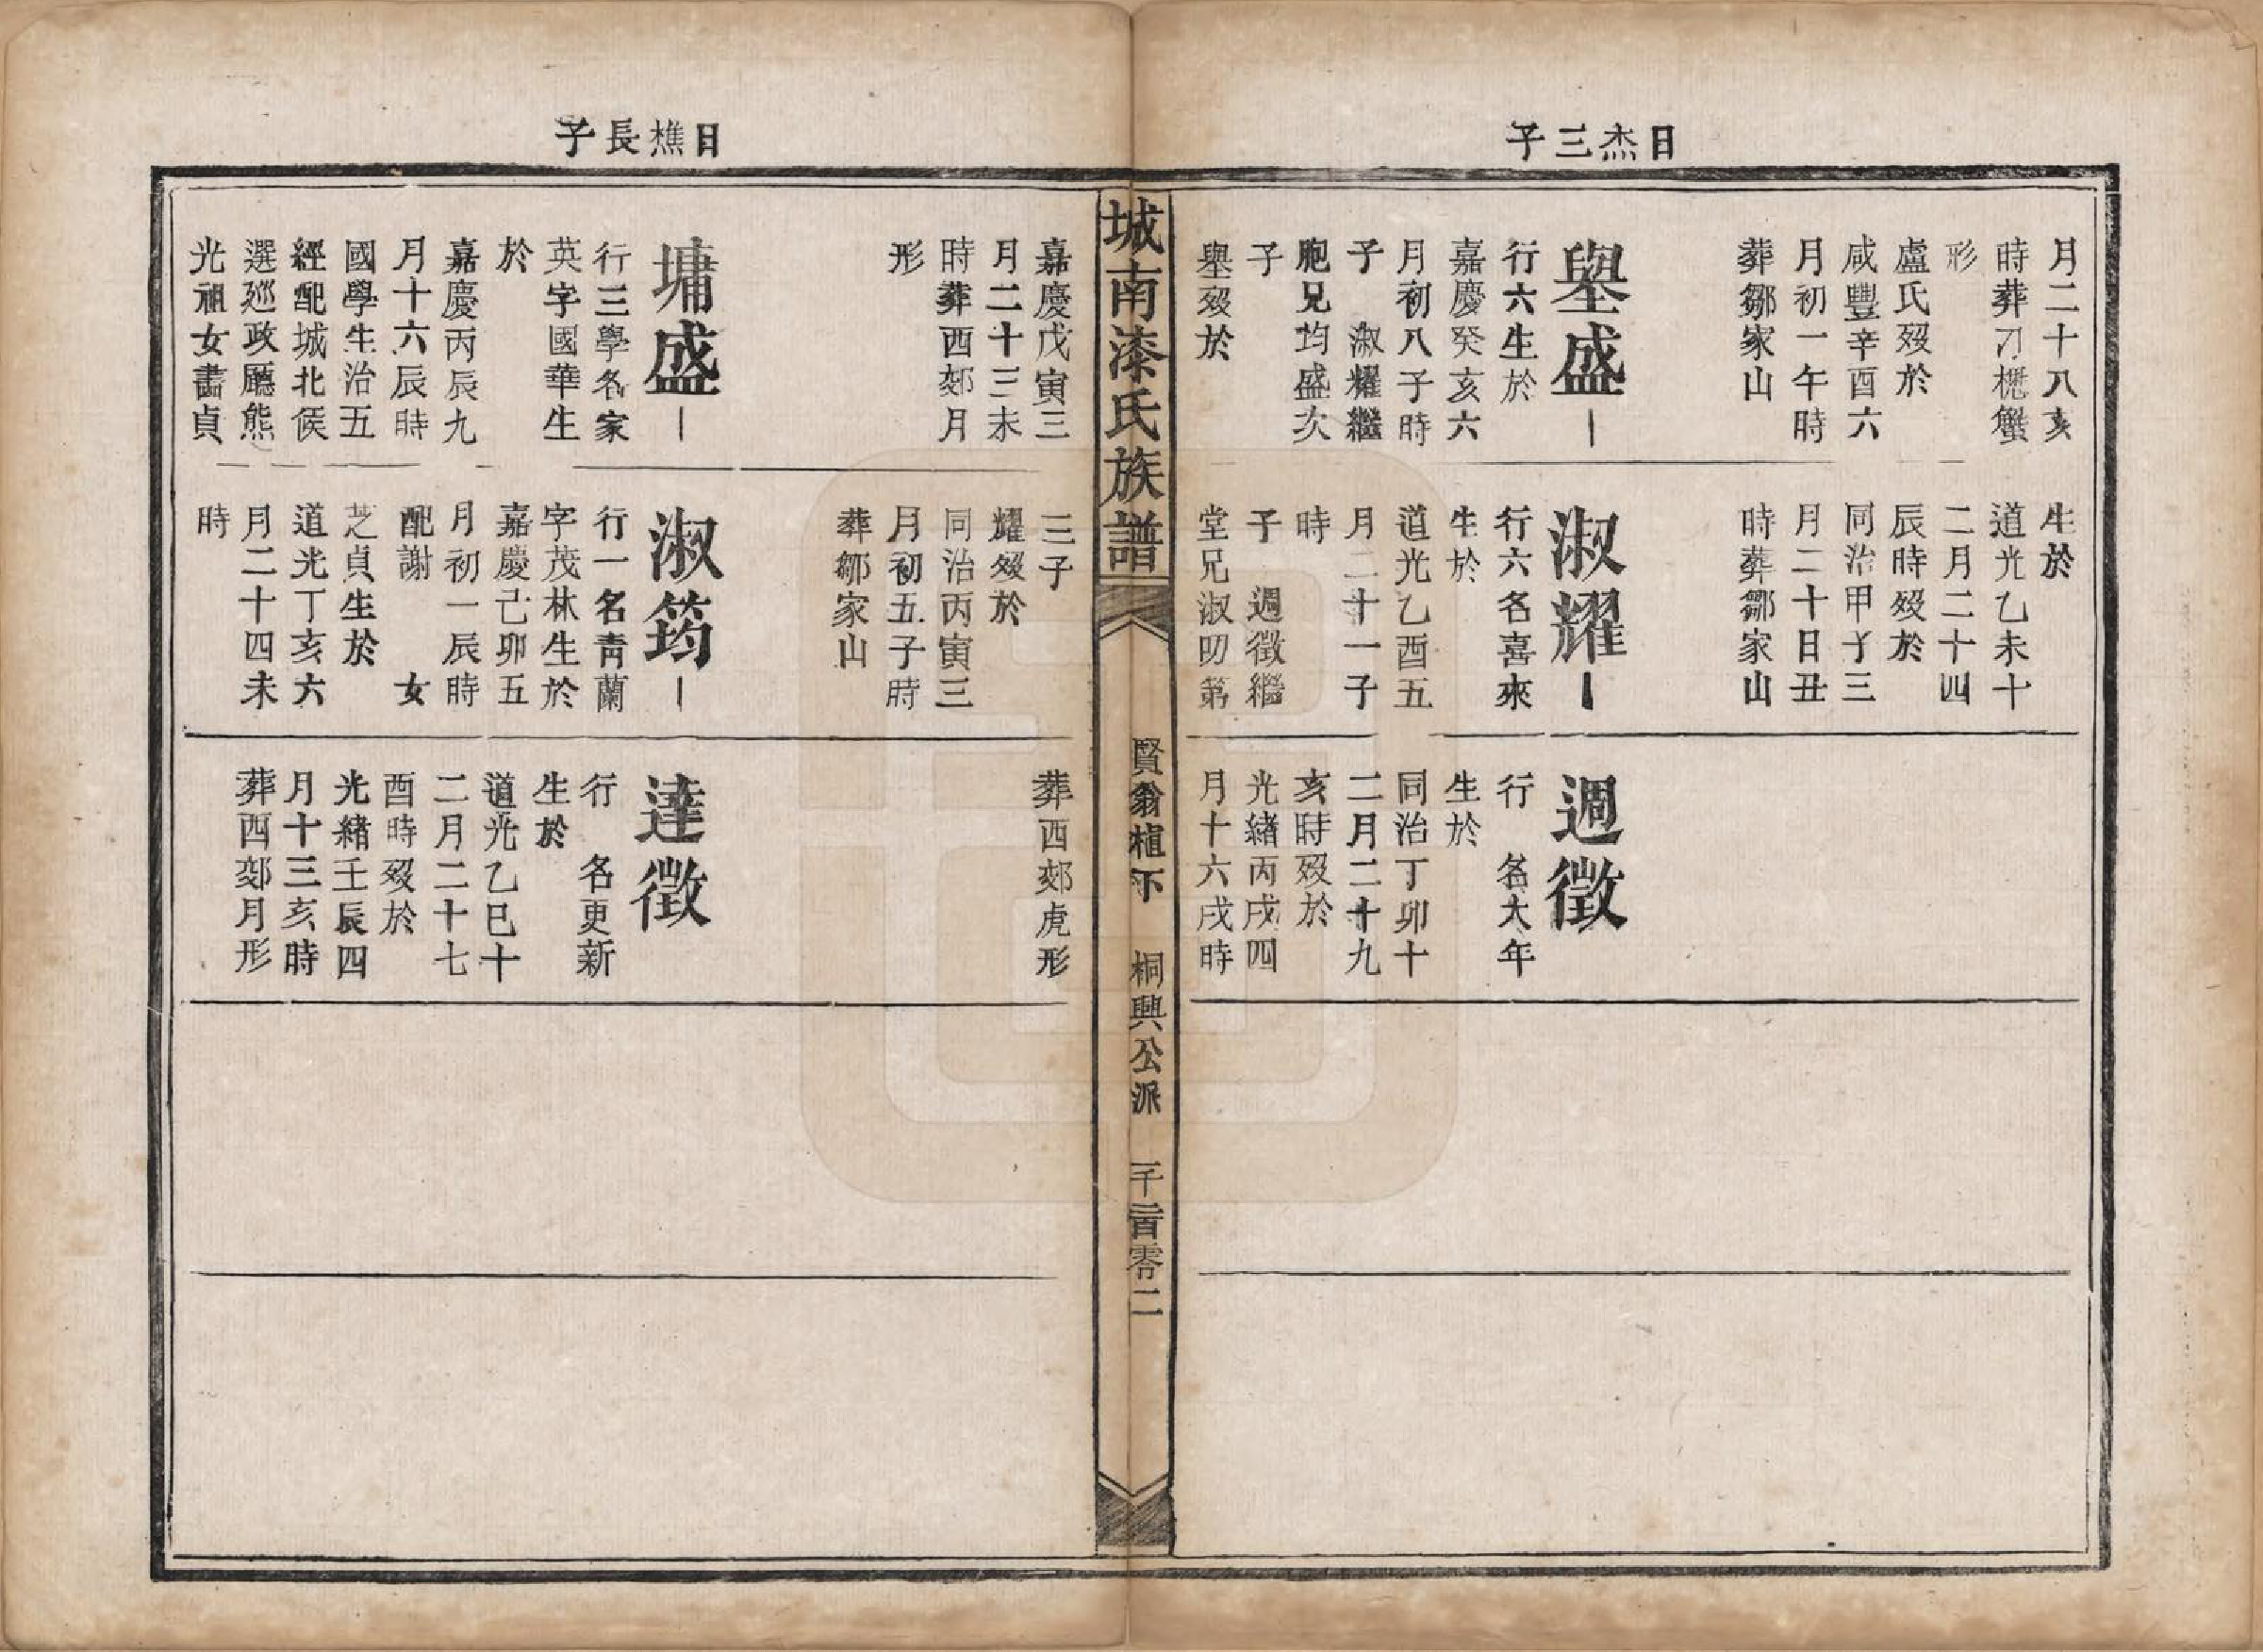 日杰三子
月二十八亥
時葬刀櫪蟹
形
盧氏歿於
咸豐辛酉六
月初一午時
葬鄒家山
壆盛
行六生於
嘉慶癸亥六
月初八子時
子　淑耀繼
胞兄均盛次
子
壆歿於
生於
道光乙未十
二月二十四
辰時歿於
同治甲子三
月二十日丑
時葬鄒家山
淑耀
行六名喜來
生於
道光乙酉五
月二十一子
時
子　週徵繼
堂兄淑昒第
週徵
行　名大年
生於
同治丁卯十
二月二十九
亥時歿於
光緒丙戌四
月十六戌時
城南漆氏族譜
賢翁植下　桐興公派　一千二百零二
日樵長子
嘉慶戊寅三
月二十三未
時葬西郊月
形
墉盛
行三學名家
英字國華生
於
嘉慶丙辰九
月十六辰時
國學生治五
經配城北侯
選廵政廳熊
光祖女書貞
三子
耀歿於
同治丙寅三
月初五子時
葬鄒家山
淑筠
行一名靑蘭
字茂林生於
嘉慶己卯五
月初一辰時
配謝　　女
芝貞生於
道光丁亥六
月二十四未
時
葬西郊虎形
達徵
行　名更新
生於
道光乙巳十
二月二十七
酉時歿於
光緒壬辰四
月十三亥時
葬西郊月形